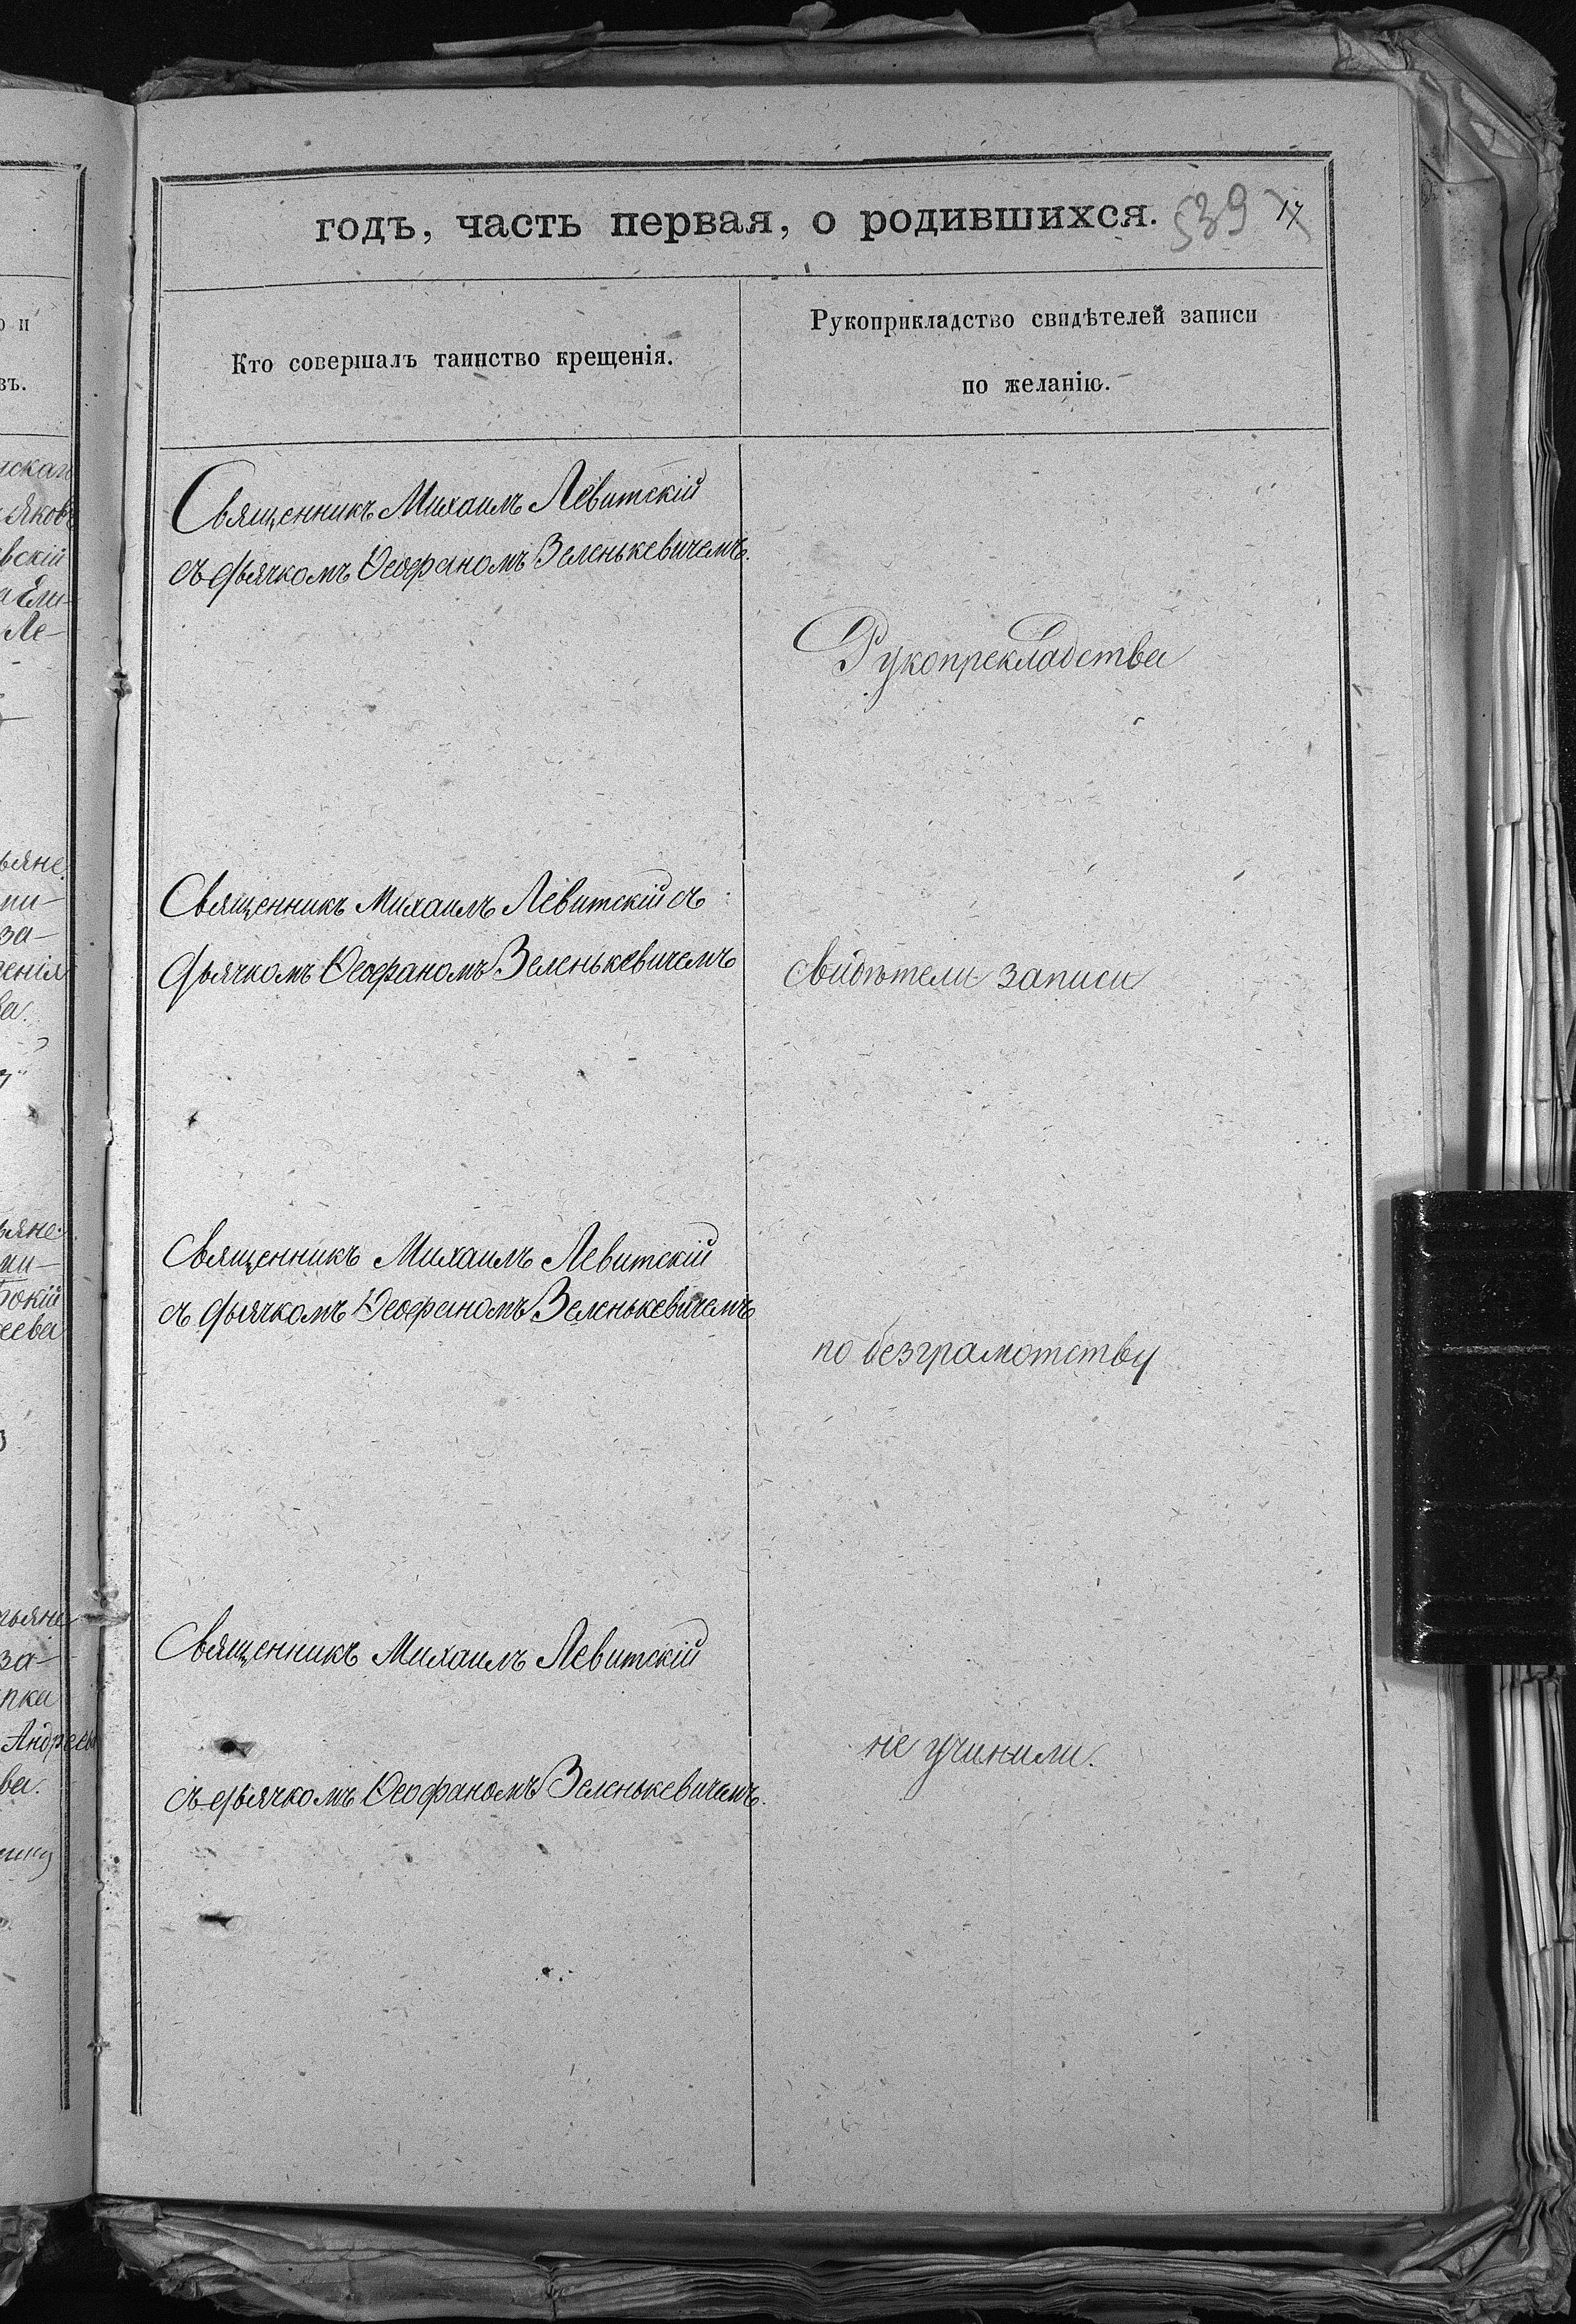 годъ, часть первая, о родившихся. 539 17
Кто совершалъ таинство крещенія.
Рукоприкладство свидѣтелей записи
по желанію.
Священникъ Михаилъ Левитскій
съ дьячкомъ Ѳеофаномъ Зеленькевичемъ.
Рукопрекладства
Священникъ Михаилъ Левитскій съ
дьячкомъ Ѳеофаномъ Зеленькевичемъ
свидѣтели записи
Священникъ Михаилъ Левитскій
съ дьячкомъ Ѳеофаномъ Зеленькевичемъ
по безграмотству
Священникъ Михаилъ Левитскій
съ дьячкомъ Ѳеофаномъ Зеленькевичемъ.
не учинили.